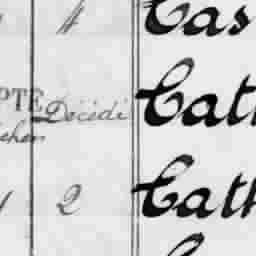 4 Cas
PTE Décédé Cath
chen
2 Cath